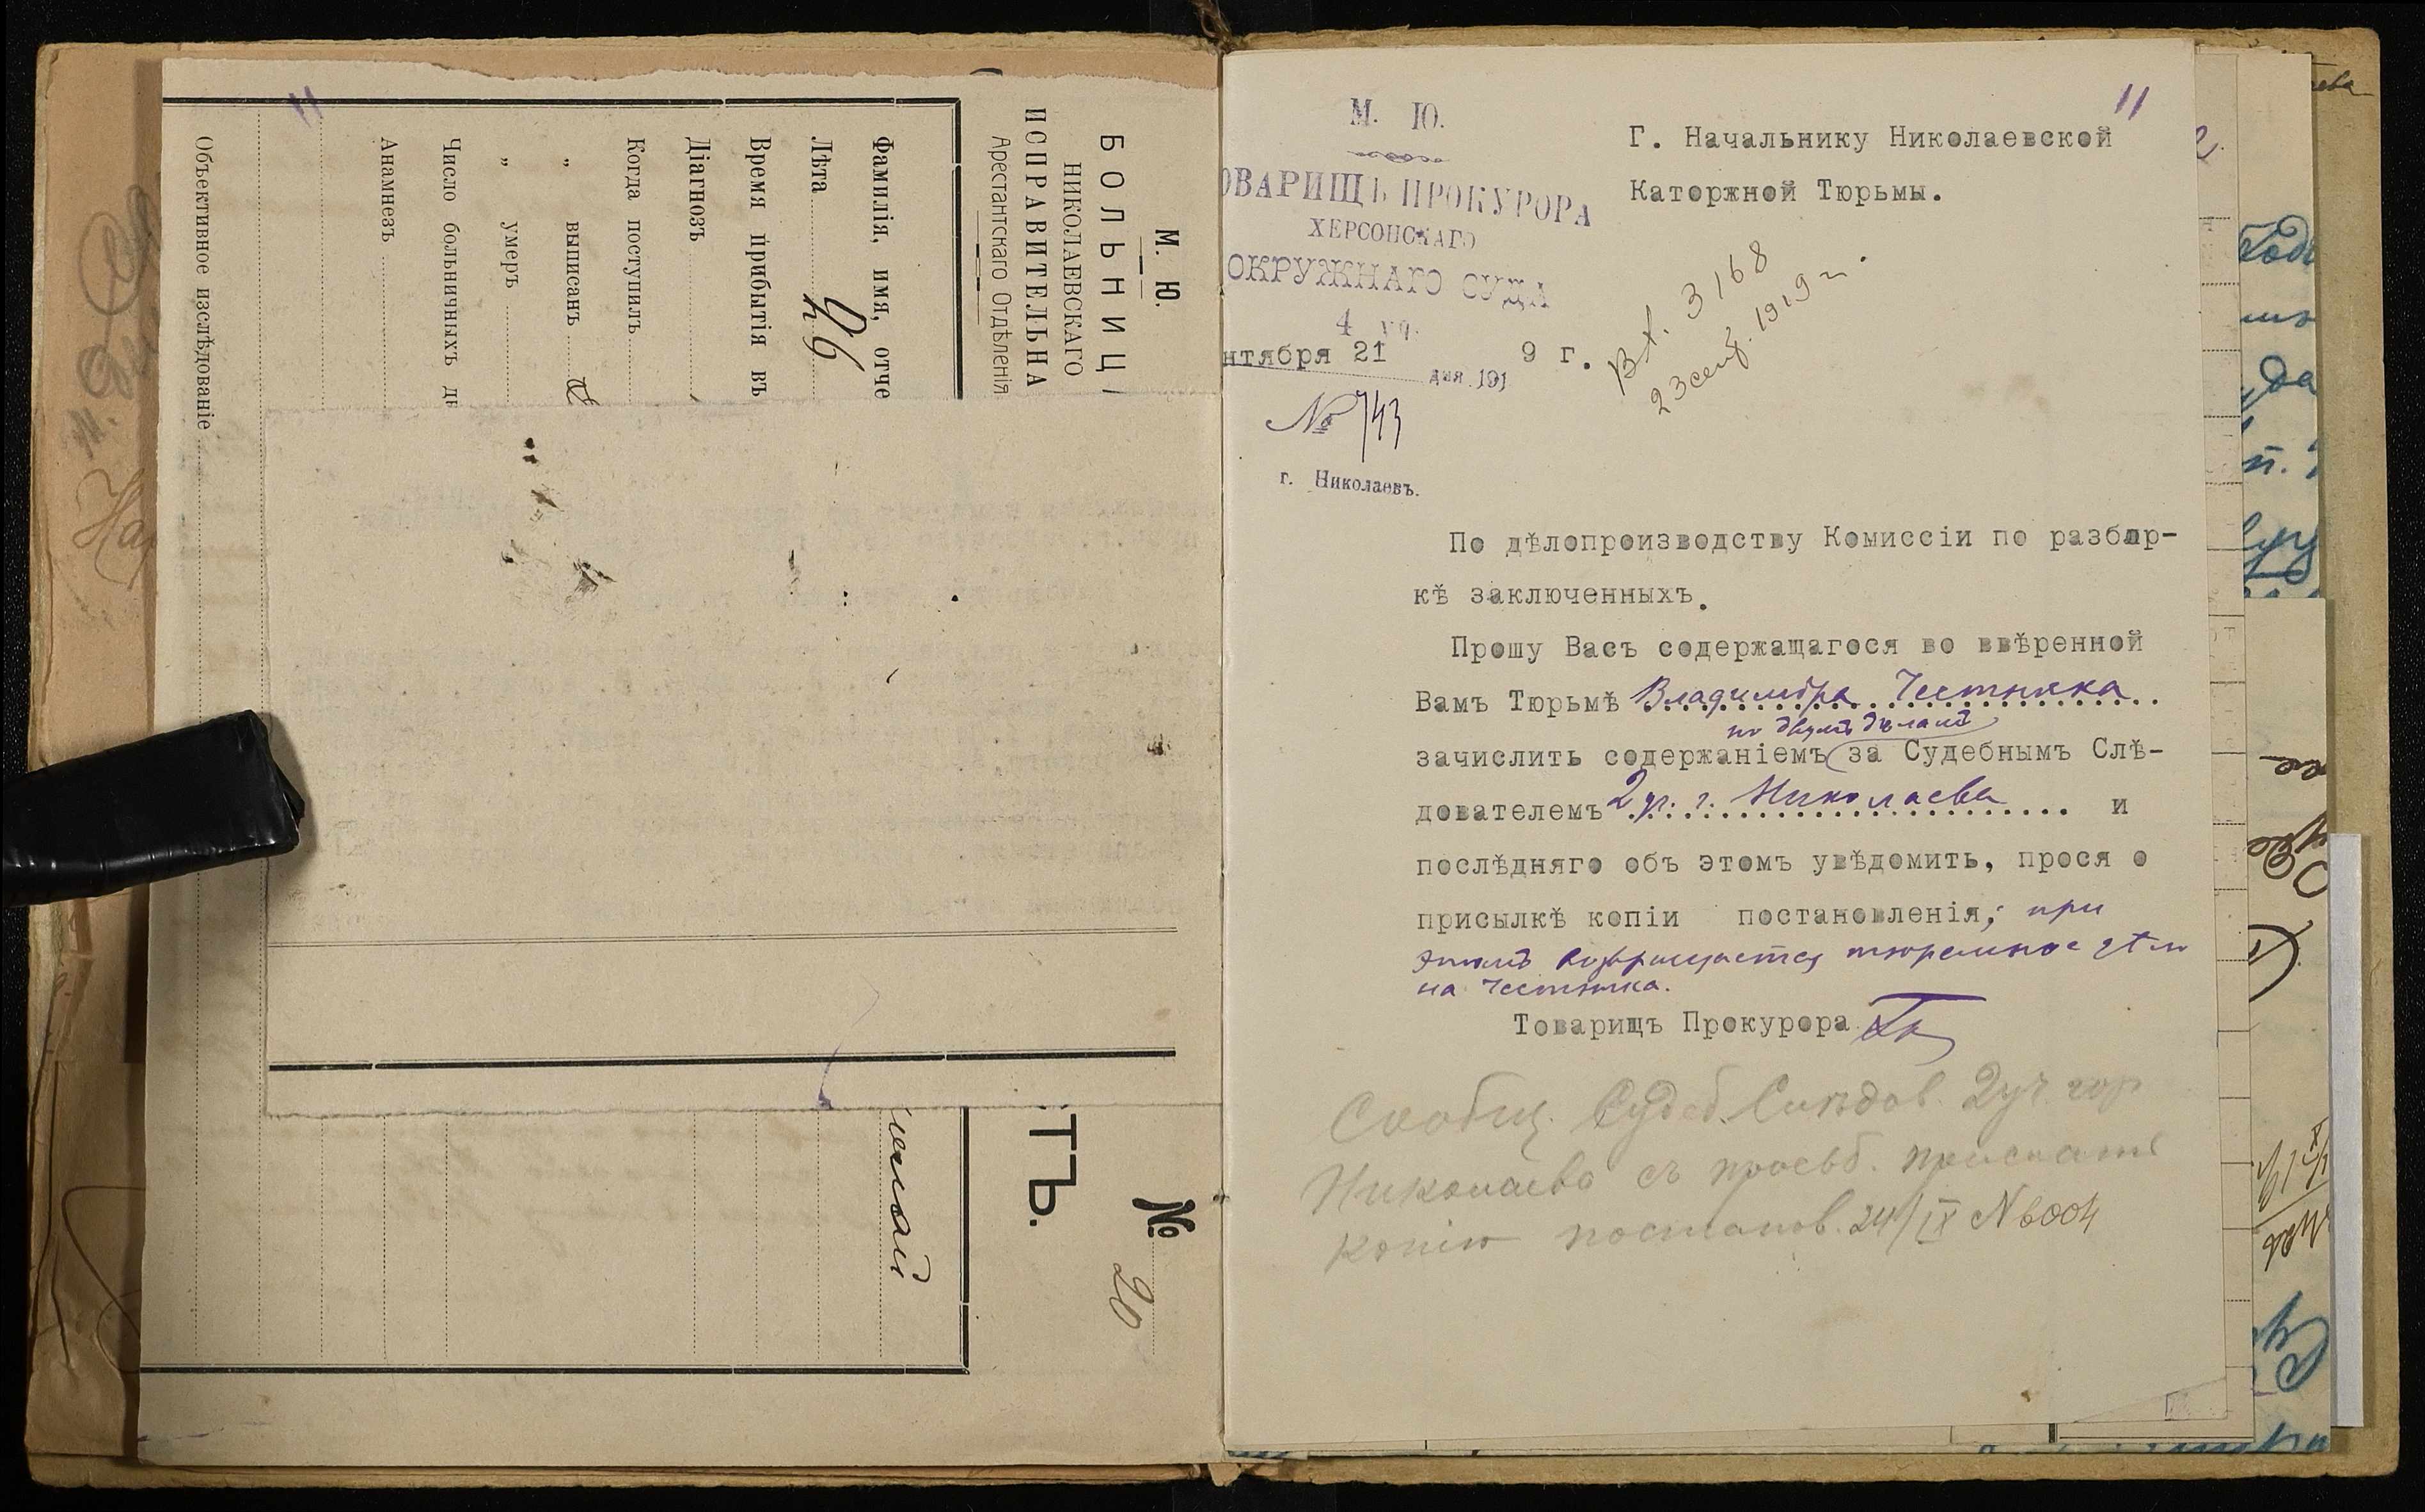 М. Ю.
БОЛЬНИЦ
НИКОЛАЕВСКАГО
ИСПРАВИТЕЛЬНА
Арестантскаго Отдѣленія
ТЪ.
№ 20
Фамилія, имя, отче
Лѣта
Время прибытія въ
Діагнозъ
Когда поступилъ
„ выписанъ
„ умеръ
Число больничныхъ дн
Анамнезъ
Объективное изслѣдованіе
11
11
М. Ю.
ОВАРИЩЪ ПРОКУРОРА
ХЕРСОНСКАГО
ОКРУЖНАГО СУДА
4 уч.
нтября 21 дня 191 9 г.
№ 743
г. Николаевъ.
Г. Начальнику Николаевской
Каторжной Тюрьмы.
Вх. 3168
23 сент. 1919 г.
По дѣлопроизводству Комиссіи по разбор-
кѣ заключенныхъ.
Прошу Васъ содержащагося во ввѣренной
Вамъ Тюрьмѣ Владиміра Честнѣка
по двумъ дѣламъ
зачислить содержаніемъ за Судебнымъ Слѣ-
дователемъ 2 уч. г. Николаева и
послѣдняго объ этомъ увѣдомить, прося о
присылкѣ копіи постановленія; при
этомъ возвращается тюремное дѣло
на Честнѣка.
Товарищъ Прокурора
Сообщ. Судеб. Слѣдов. 2 уч. гор
Николаева съ просьб. прислать
копію постанов. 24/IX № 6004